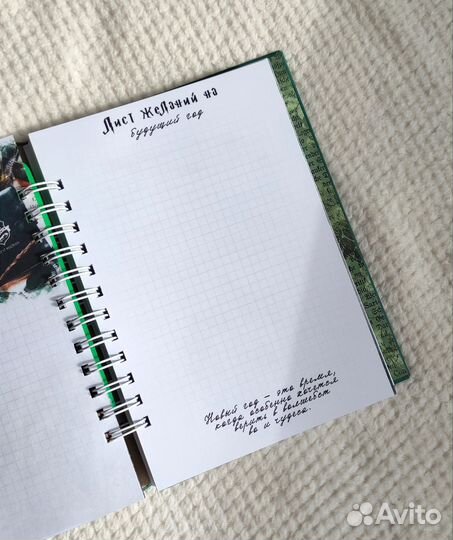 Лист желаний на
будущий год
Новый год – это время,
когда особенно хочется
верить в волшебст
во и чудеса.
Avito